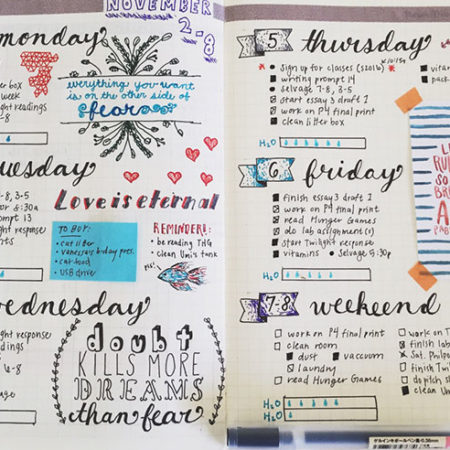 NOVEMBER
2-8
monday
er box
week
ght readings
everything you want
is on the other side of
fear
uesday
-8, 3-5
or 8:30a
rompt 13
ght response
ghts
Love is eternal
TO BUY:
• cat litter
• vanessa's b-day pres.
• cat food
• USB drive
REMINDER!:
• be reading THG
• clean Umi's tank
ednesday
ght response
readings
age
doubt
KILLS MORE
DREAMS
than fear
5 thursday
• sign up for classes (s2016)
writing prompt 14
selvage 7-8, 3-5
start essay 3 draft 2
work on P4 final print
clean litter box
H2O
vita
pack
6 friday
finish essay 3 draft 2
work on P4 final print
read Hunger Games
do lab assignment(s)
start Twilight response
vitamins • selvage 5:30p
H2O
7-8 weekend
work on P4 final print
clean room
dust vaccuum
laundry
read Hunger Games
H2O
work on T
finish lab
finish Twi
clean Um